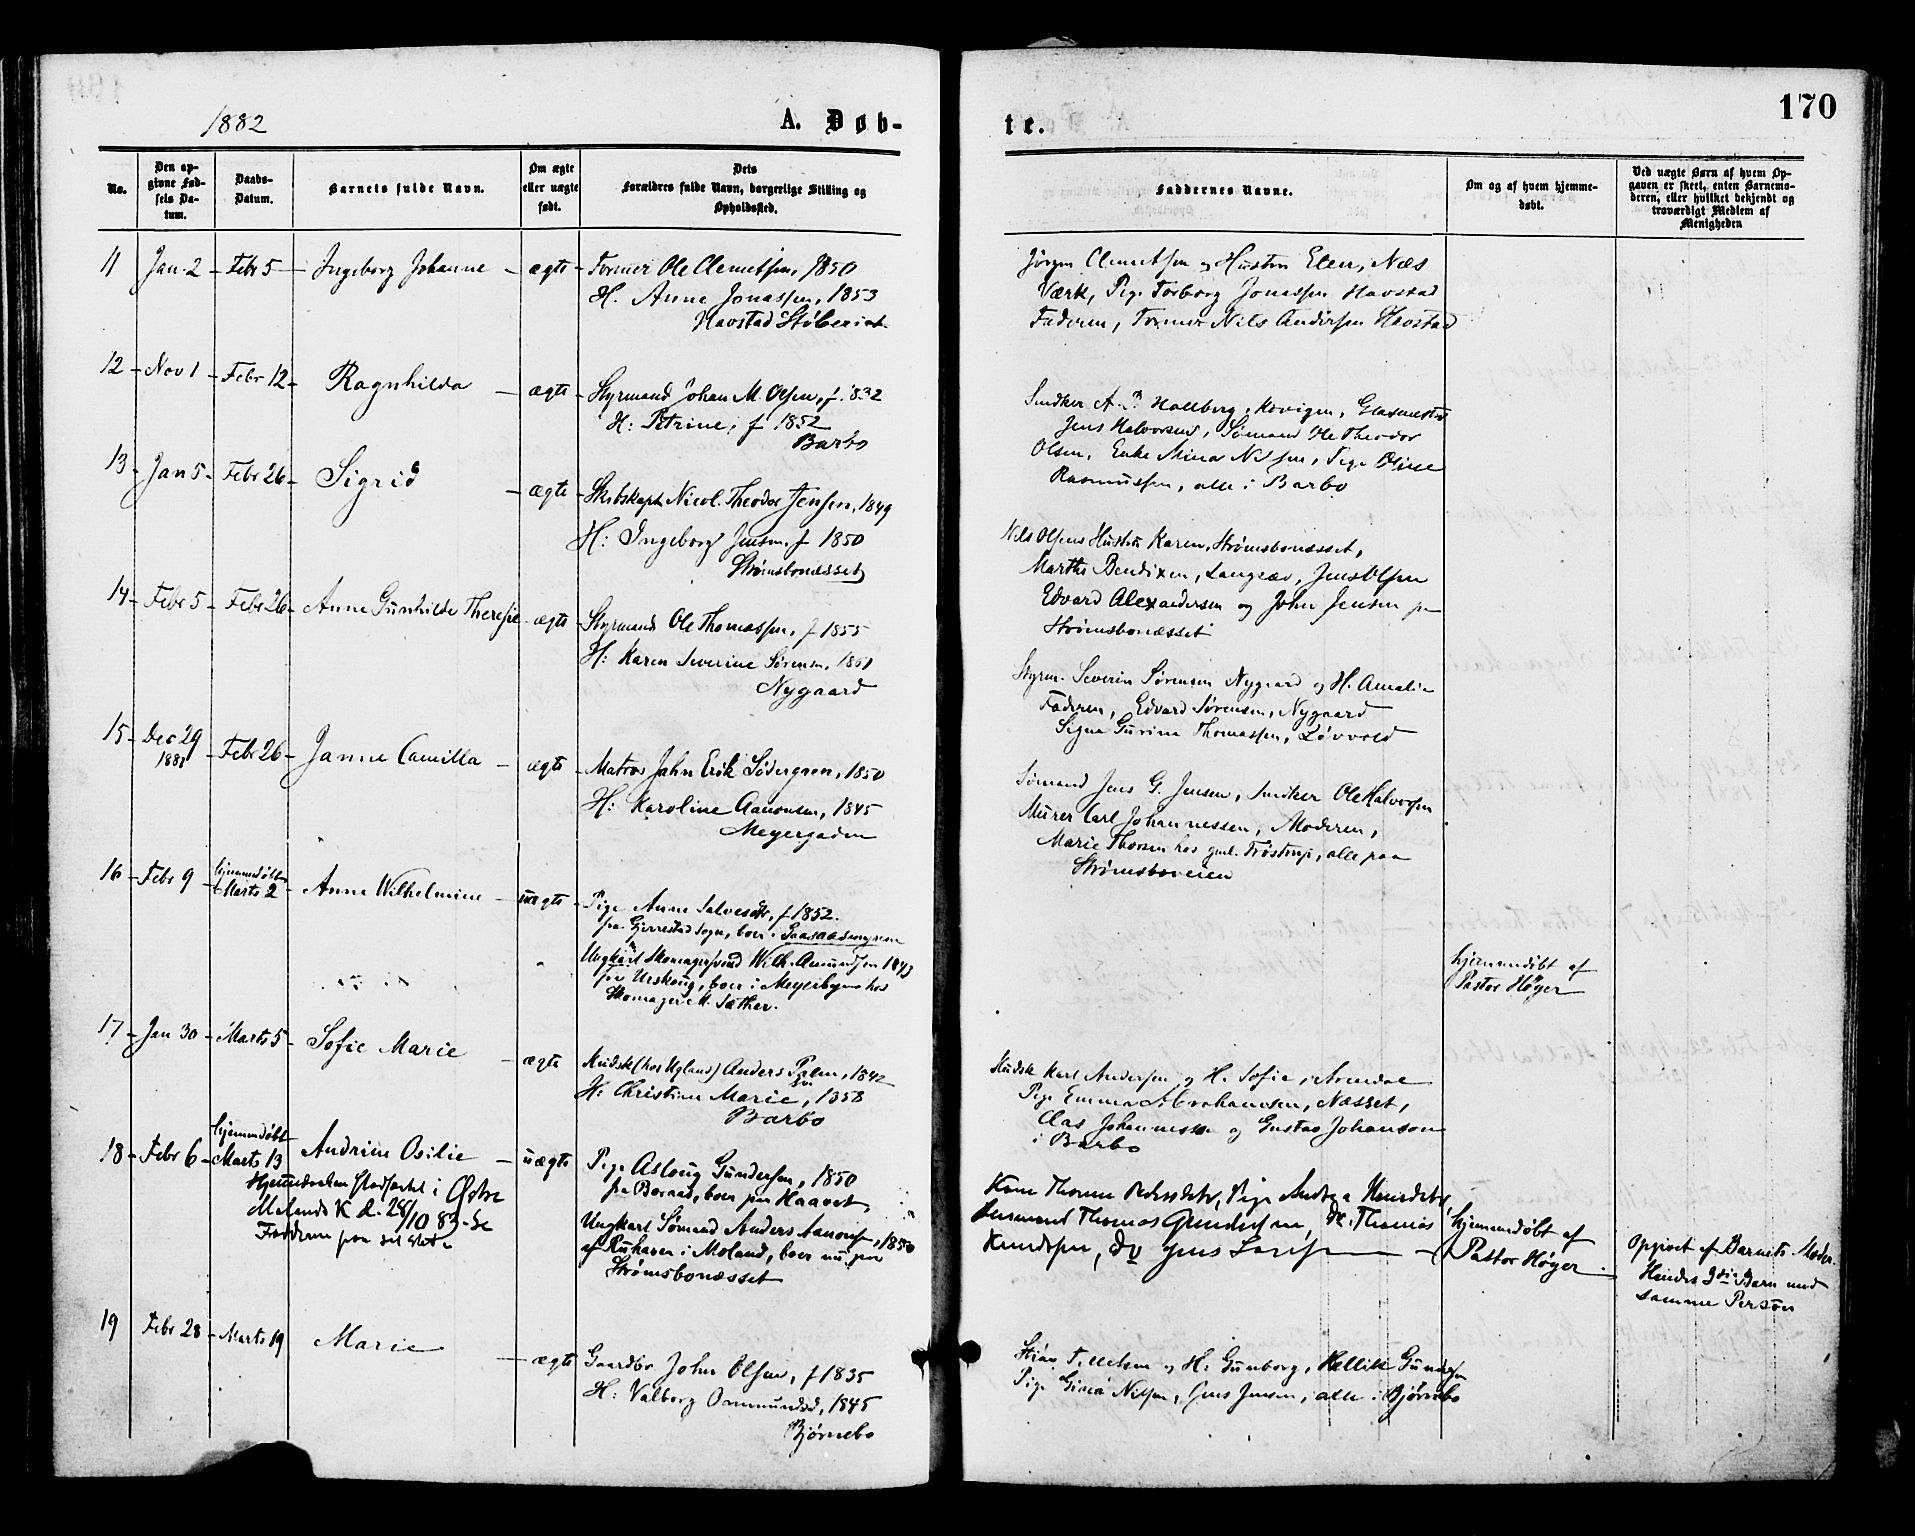 170
1882
A. Døb-
te.
No.
Den op-
givne Fød-
sels Da-
tum.
Daabs-
Datum.
Barnets fulde Navn.
Om ægte
eller uægte
født.
Dets
Forældres fulde Navn, borgerlige Stilling og
Opholdssted.
Faddernes Navne.
Om og af hvem hjemme-
døbt.
Ved uægte Børn af hvem Op-
gaven er skeet, enten Barnemo-
deren, eller hvilket bekjendt og
troværdigt Medlem af
Menigheden
11 Jan. 2 Febr 5 Ingeborg Johanne ægte Former Ole Clemetsen, 1850
H. Anna Jonassen, 1853
Havstad Støberiet
Jørgen Clemetsen og Hustru Elen, Næs
Værk, Pige Torborg Jonassen Havstad
Faderen, Former Nils Andersen Havstad
12 Nov 1 Febr 12 Ragnhilda ægte Styrmand Johan M. Olsen, f. 1832
H: Petrine, f 1852
Barbo
Snedker Hallberg, Kovigen, Glasmester
Jens Halvorsen, Sømand Ole Theodor
Olsen, Enke Mina Nilsen, Pige Oline
Rasmussen, alle i Barbo
13 Jan 5 Febr 26 Sigrid ægte Skibskapt Nicol. Theodor Jensen, 1849
H: Ingeborg Jensen, f 1850
Strømsbonæsset
Nils Olsens Hustru Karen, Strømsbonæsset,
Marthe Bendixen, Langsæv, Jens Olsen
Edvard Alexandersen og John Jensen paa
Strømsbonæsset
14 Febr 5 Febr 26 Anne Gunhilde Theresie ægte Styrmand Ole Thomassen, f 1855
H: Karen Severine Sørensen, 1861
Nygaard
Styrm. Severin Sørensen Nygaard og H. Amalie
Faderen, Edvard Sørensen, Nygaard
Signe Gurine Thomassen, Løvvold
15 Dec 29 Febr 26 Janne Camilla ægte Matros Jahn Erik Södergren, 1850
1881
H: Karoline Aanonsen, 1845
Meyergaden
Sømand Jens G. Jensen, Snedker Ole Halvorsen
Murer Carl Johannessen, Moderen,
Marie Thorsen hos gml. Trøstrup, alle paa
Strømsboveien
16 Febr 9 hjemmedøbt
Marts 2 Anna Wilhelmine uægte Pige Anne Salvesdtr, f 1852.
fra Gjerrestad sogn, boer i
Ungkarl Skomagersvend Wilh. Amundsen 1843
fra Urskoug, boer i Meyerbyen hos
Skomager M. Sæther.
hjemmedøbt af
Pastor Høyer
17 Jan 30 Marts 5 Sofie Marie ægte Kudsk (hos Ugland) Anders 1842
H: Christine Marie, 1858
Barbo
Kudsk Karl Andersen og H. Sofie, Arendal
Pige Emma Abrahamsen, Næsset,
Clas Johannessen og Gustav Johanson
i Barbo
18 Febr 6 hjemmedøbt
Marts 13 Andrine Osilie uægte Pige Aslaug Gundersen, 1850
fra Boraas, boer paa Haavet
Ungkarl Sømand Anders Aanonsen, 1850
af Kuhaven i Moland, boer nu paa
Strømsbonæsset
i Østre
Molands K d. 28/10 83. Se
Fadderne paa
Kone Thomine Pedersdatr, Pige Andrea Knudsdtr,
Thomas Gundersen, Thomas
Knudsen, do Jens
hjemmedøbt af
Pastor Høyer.
Opgivet af Barnets Moder.
Hendes 3die Barn med
samme Person
19 Febr 28 Marts 19 Marie ægte Gaardbr John Olsen, f 1835
H: Valborg Ommundsd, 1845
Bjørnebo
Stian Tellefsen og H: Gunborg, Kellik Gundersen
Pige Gina Nilsen, Jens Jensen, alle i Bjørnebo